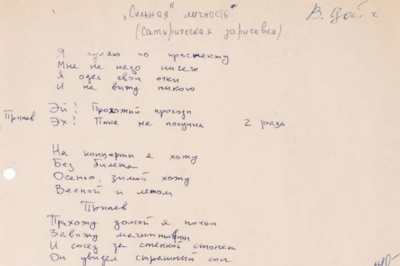 „Сильная" личность"
(Сатирическая зарисовка)
В. Цой
Я гуляю по проспекту
Мне не надо ничего
Я одел свои очки
И не вижу никого
Припев
Эй! Прохожий проходи
Эх! Пока не получил 2 раза
На концерты я хожу
Без билета
Осенью, зимой хожу
Весной и летом
Припев
Прихожу домой я ночью
Завожу магнитофон
И сосед за стенкой стонет
Он увидел страшный сон